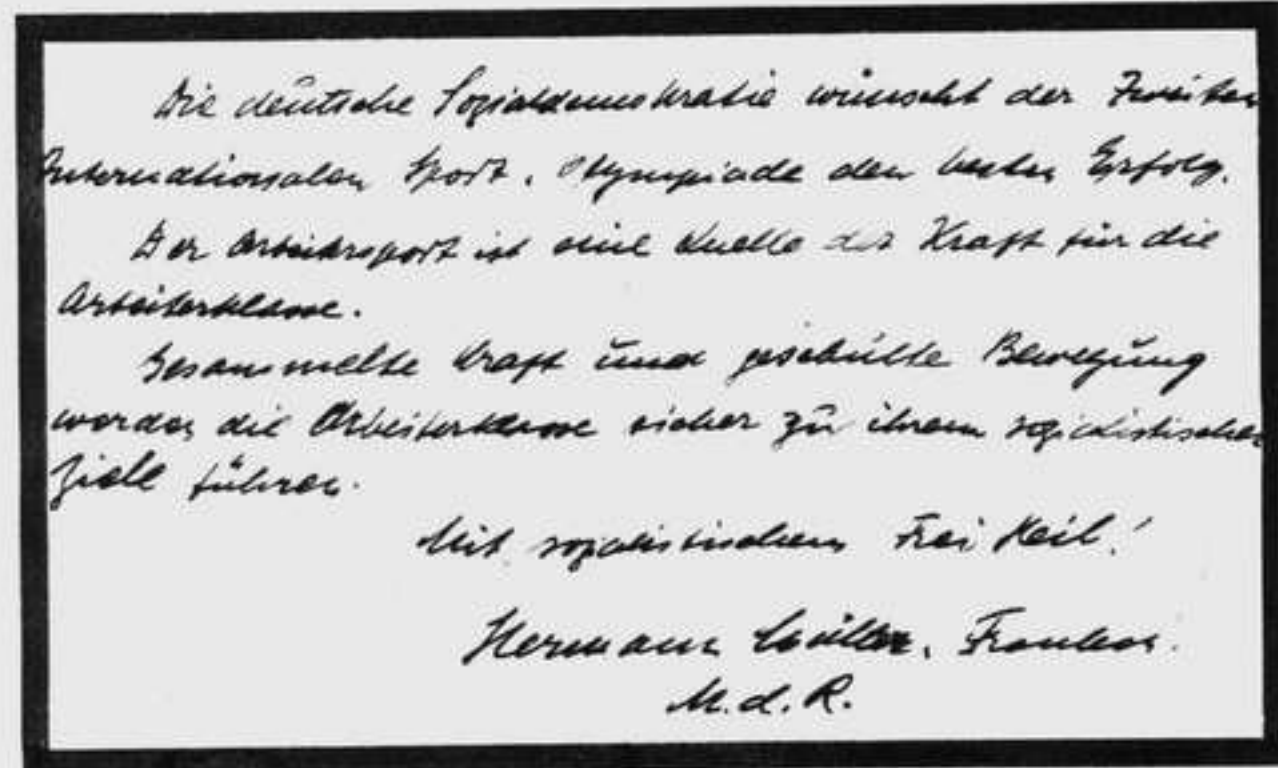 Die deutsche Sozialdemokratie wünscht der Zweiten
Internationalen Sport-Olympiade den besten Erfolg.
Der Arbeitersport ist eine Quelle der Kraft für die
Arbeiterklasse.
Gesammelte Kraft und geschulte Bewegung
werden die Arbeiterklasse sicher zu ihrem sozialistischen
Ziele führen.
Mit sozialistischem Frei Heil!
Hermann Müller, Franken.
M.d.R.